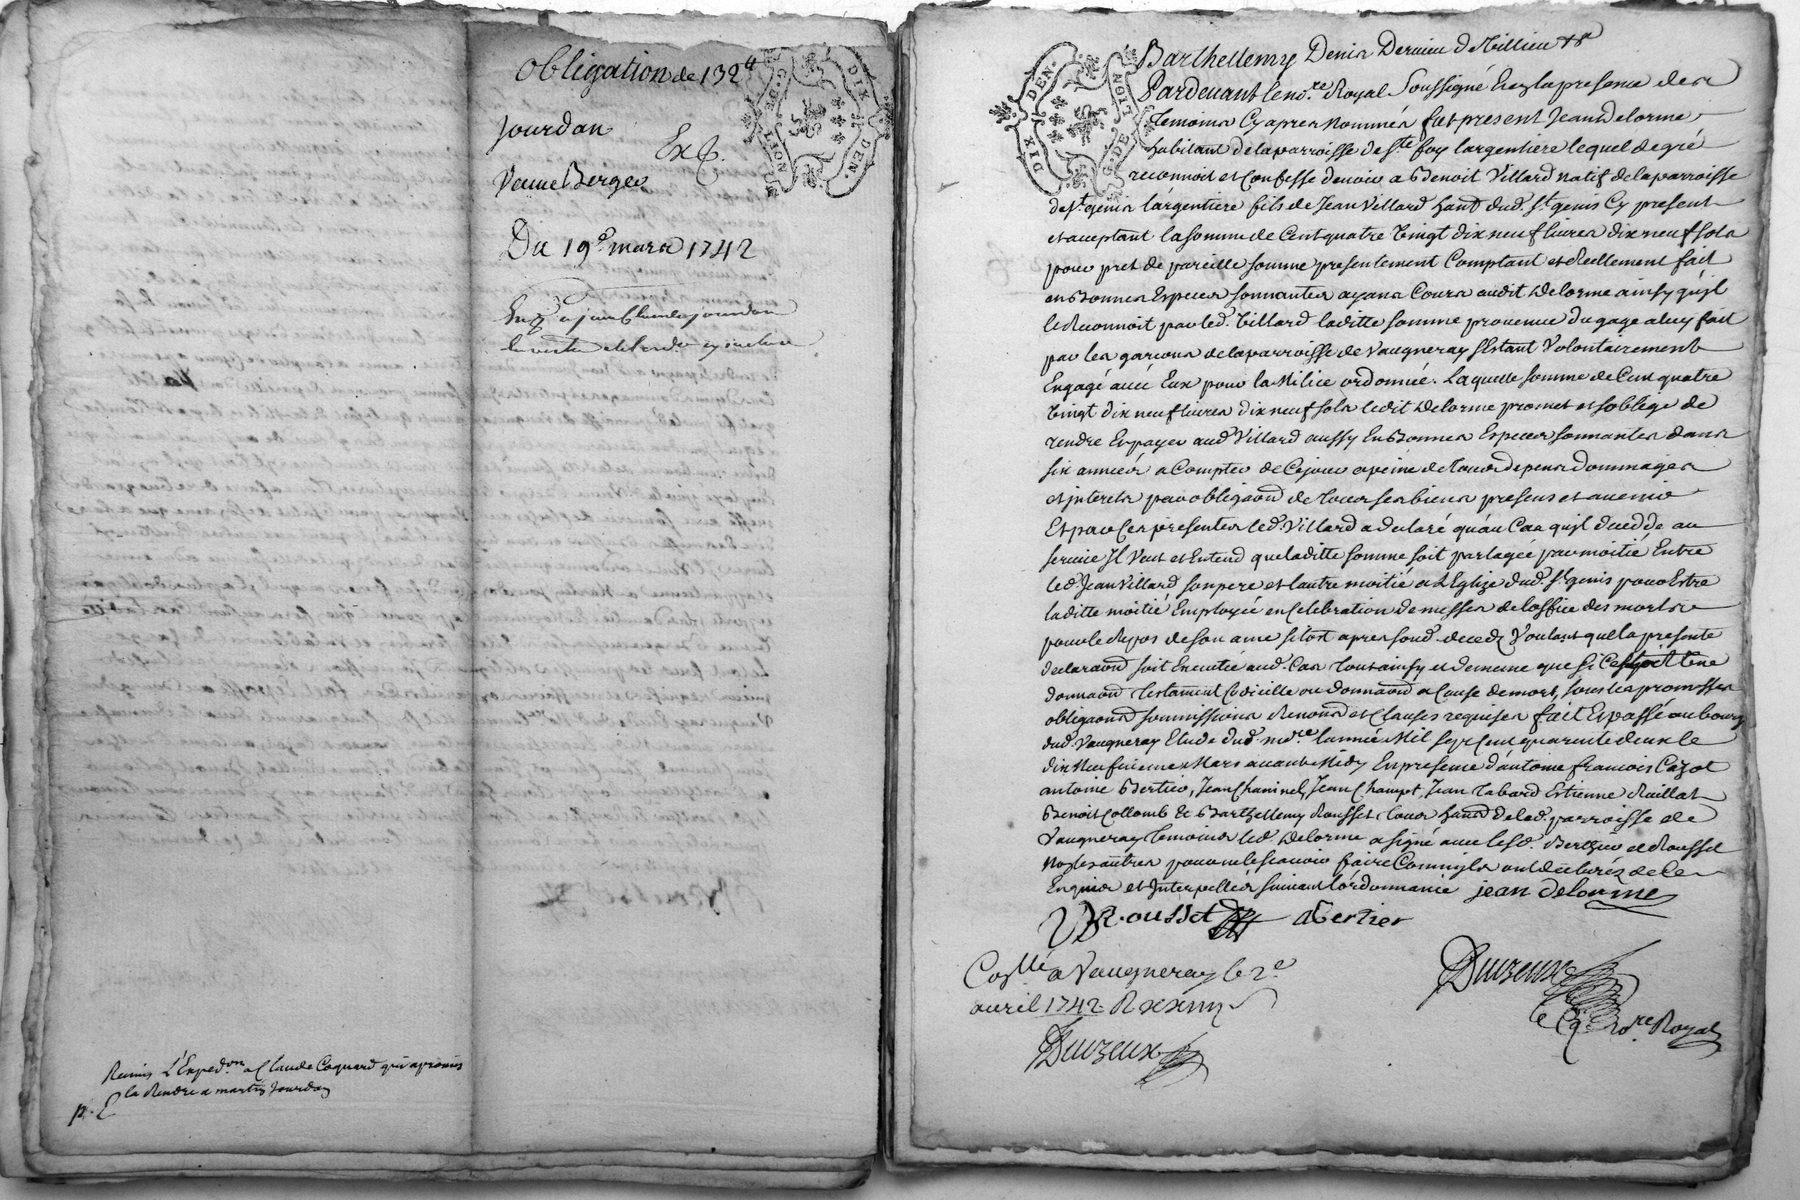 obligation de 132 lt
Jourdan
Veuve Berger
Du 19e mars 1742
a jean jourdan
Remis L'Exped.on a Claude Coquard qui a promis
la Rendre a martin Jourdan
G. DE LION DIX DEN.
DIX DEN. G. DE LION
Barthellemy Denis Dernier de Millieu
Pardevant le no.re Royal Soussigné Et en la presence des
temoins Cy apres nommés fut present Jean Delorme
habitant de la parroisse de S.te foy l'argentiere lequel de gré
reconnoit et Confesse devoir a Benoit Villard natif de la parroisse
de S.t genis l'argentiere fils de Jean Villard hant dud. S.t genis Cy present
et acceptant la somme de Cent quatre Vingt dix neuf livres dix neuf sols
pour pret de pareille somme presentement Comptant et Reellement fait
en Bonnes Especes sonnantes ayans Cours audit Delorme ainsy quil
le Reconnoit par led. Villard laditte somme provenue du gage a luy fait
par les garcons de la parroisse de Vaugneray s'Estant Volontairement
Engagé avec Eux pour la Milice ordonnée. Laquelle somme de Cent quatre
Vingt dix neuf livres dix neuf sols ledit Delorme promet et soblige de
rendre Et payer aud. Villard aussy En Bonnes Especes sonnantes dans
six années a Compter de Ce jour a peine de tous depens dommages
et interets par obligaond de tous ses biens presens et avenir
Et par Ces presentes led. Villard a declaré qu'au Cas quil decedde au
service Il Veut et Entend que laditte somme soit partagée par moitié Entre
led. Jean Villard son pere et l'autre moitié a L'Eglize dud. S.t genis pour Estre
laditte moitié Employée en Celebration de messes de l'office des morts
pour le Repos de son ame sitost apres sond. decedz Voulant que la presente
declaraond soit Executée aud. Cas tout ainsy et de meme que si C'estoit Une
donnaond testament Codicille ou donnaond a Cause de mort, sous les promesses
obligaons soumissions Renonds et Clauses requises fait Et passé au bourg
dud. Vaugneray Etude dud. no.re l'année Mil sept Cent quarente deux le
dix Neufvieme Mars avant Midy En presence d'antoine francois Cazot
antoine Bertier, Jean Chaninel, Jean Champt, Jean tabard Estienne Raillat
Benoit Collomb & Barthellemy Rousset tous hand de lad. parroisse de
Vaugneray temoins led. Delorme a signé avec lesd. Bertier et Rousset
Non les autres pour ne le scavoir faire Comme ils ont declarés de Ce
Enquis et Interpellés suivant l'ordonnance jean delorme
B. Rousset A Bertier
Con.llé a Vaugneray le 2e
avril 1742 R
Duvzeux
Duvzeux
no.re Royal